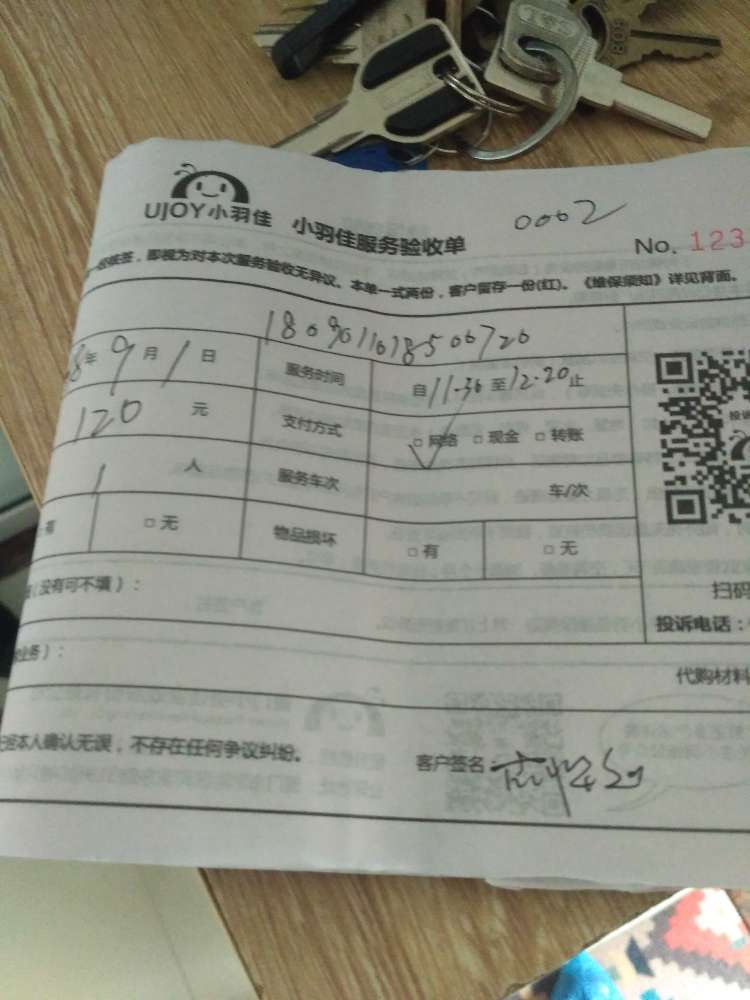 UJOY小羽佳 小羽佳服务验收单 0002
No. 123
一经核签，即视为对本次服务验收无异议。本单一式两份，客户留存一份(红)。《维保须知》详见背面。
8年9月1日 服务时间 自11.36至12.20止
120元 支付方式 □网络 □现金 □转账
1人 服务车次 车/次
有 □无 物品损坏 □有 □无
（没有可不填）：
扫码
投诉电话：
业务）：
代购材料
本人确认无误，不存在任何争议纠纷。
客户签名：